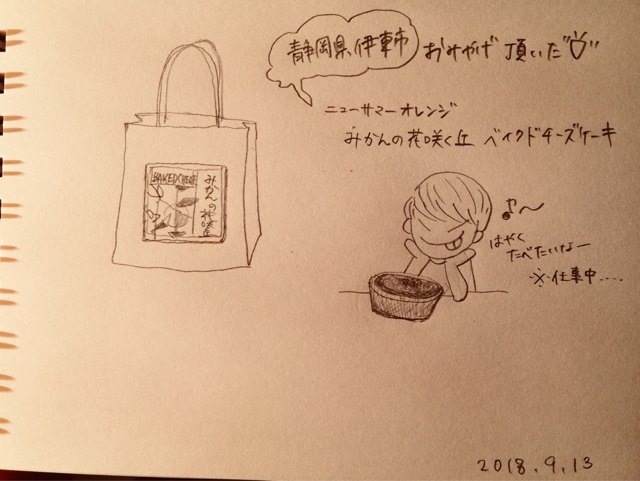 静岡県伊東市
おみやげ 頂いた"
ニューサマーオレンジ
みかんの花咲く丘 ベイクドチーズケーキ
BAKED CHEESE
みかんの花咲く丘
はやく
たべたいなー
※仕事中....
2018.9.13